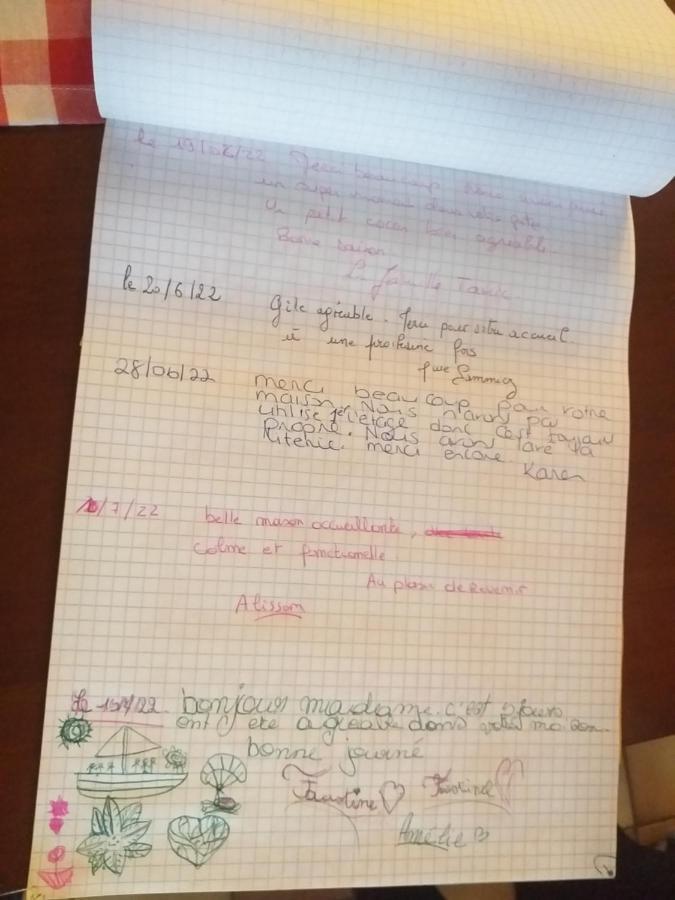 le 19/06/22 Merci beaucoup
un super moment dans votre gite
Un petit cocon bien agréable.
Bonne saison
La famille
le 20/6/22 Gite agréable. Merci pour votre accueil
et une prochaine fois
28/06/22 merci beaucoup pour votre
maison. Nous n'avons pas
utilise l'etage donc c'est toujours
propre. Nous avons lavé la
literie. merci encore Karen
10/7/22 belle maison accueillante,
calme et fonctionelle
Au plaisir de Revenir
Alisson
Le 15/7/22 bonjour madame c'est 2 jours
ont été agreable dans votre maison
bonne journé
Faustine Faustine
Amélie